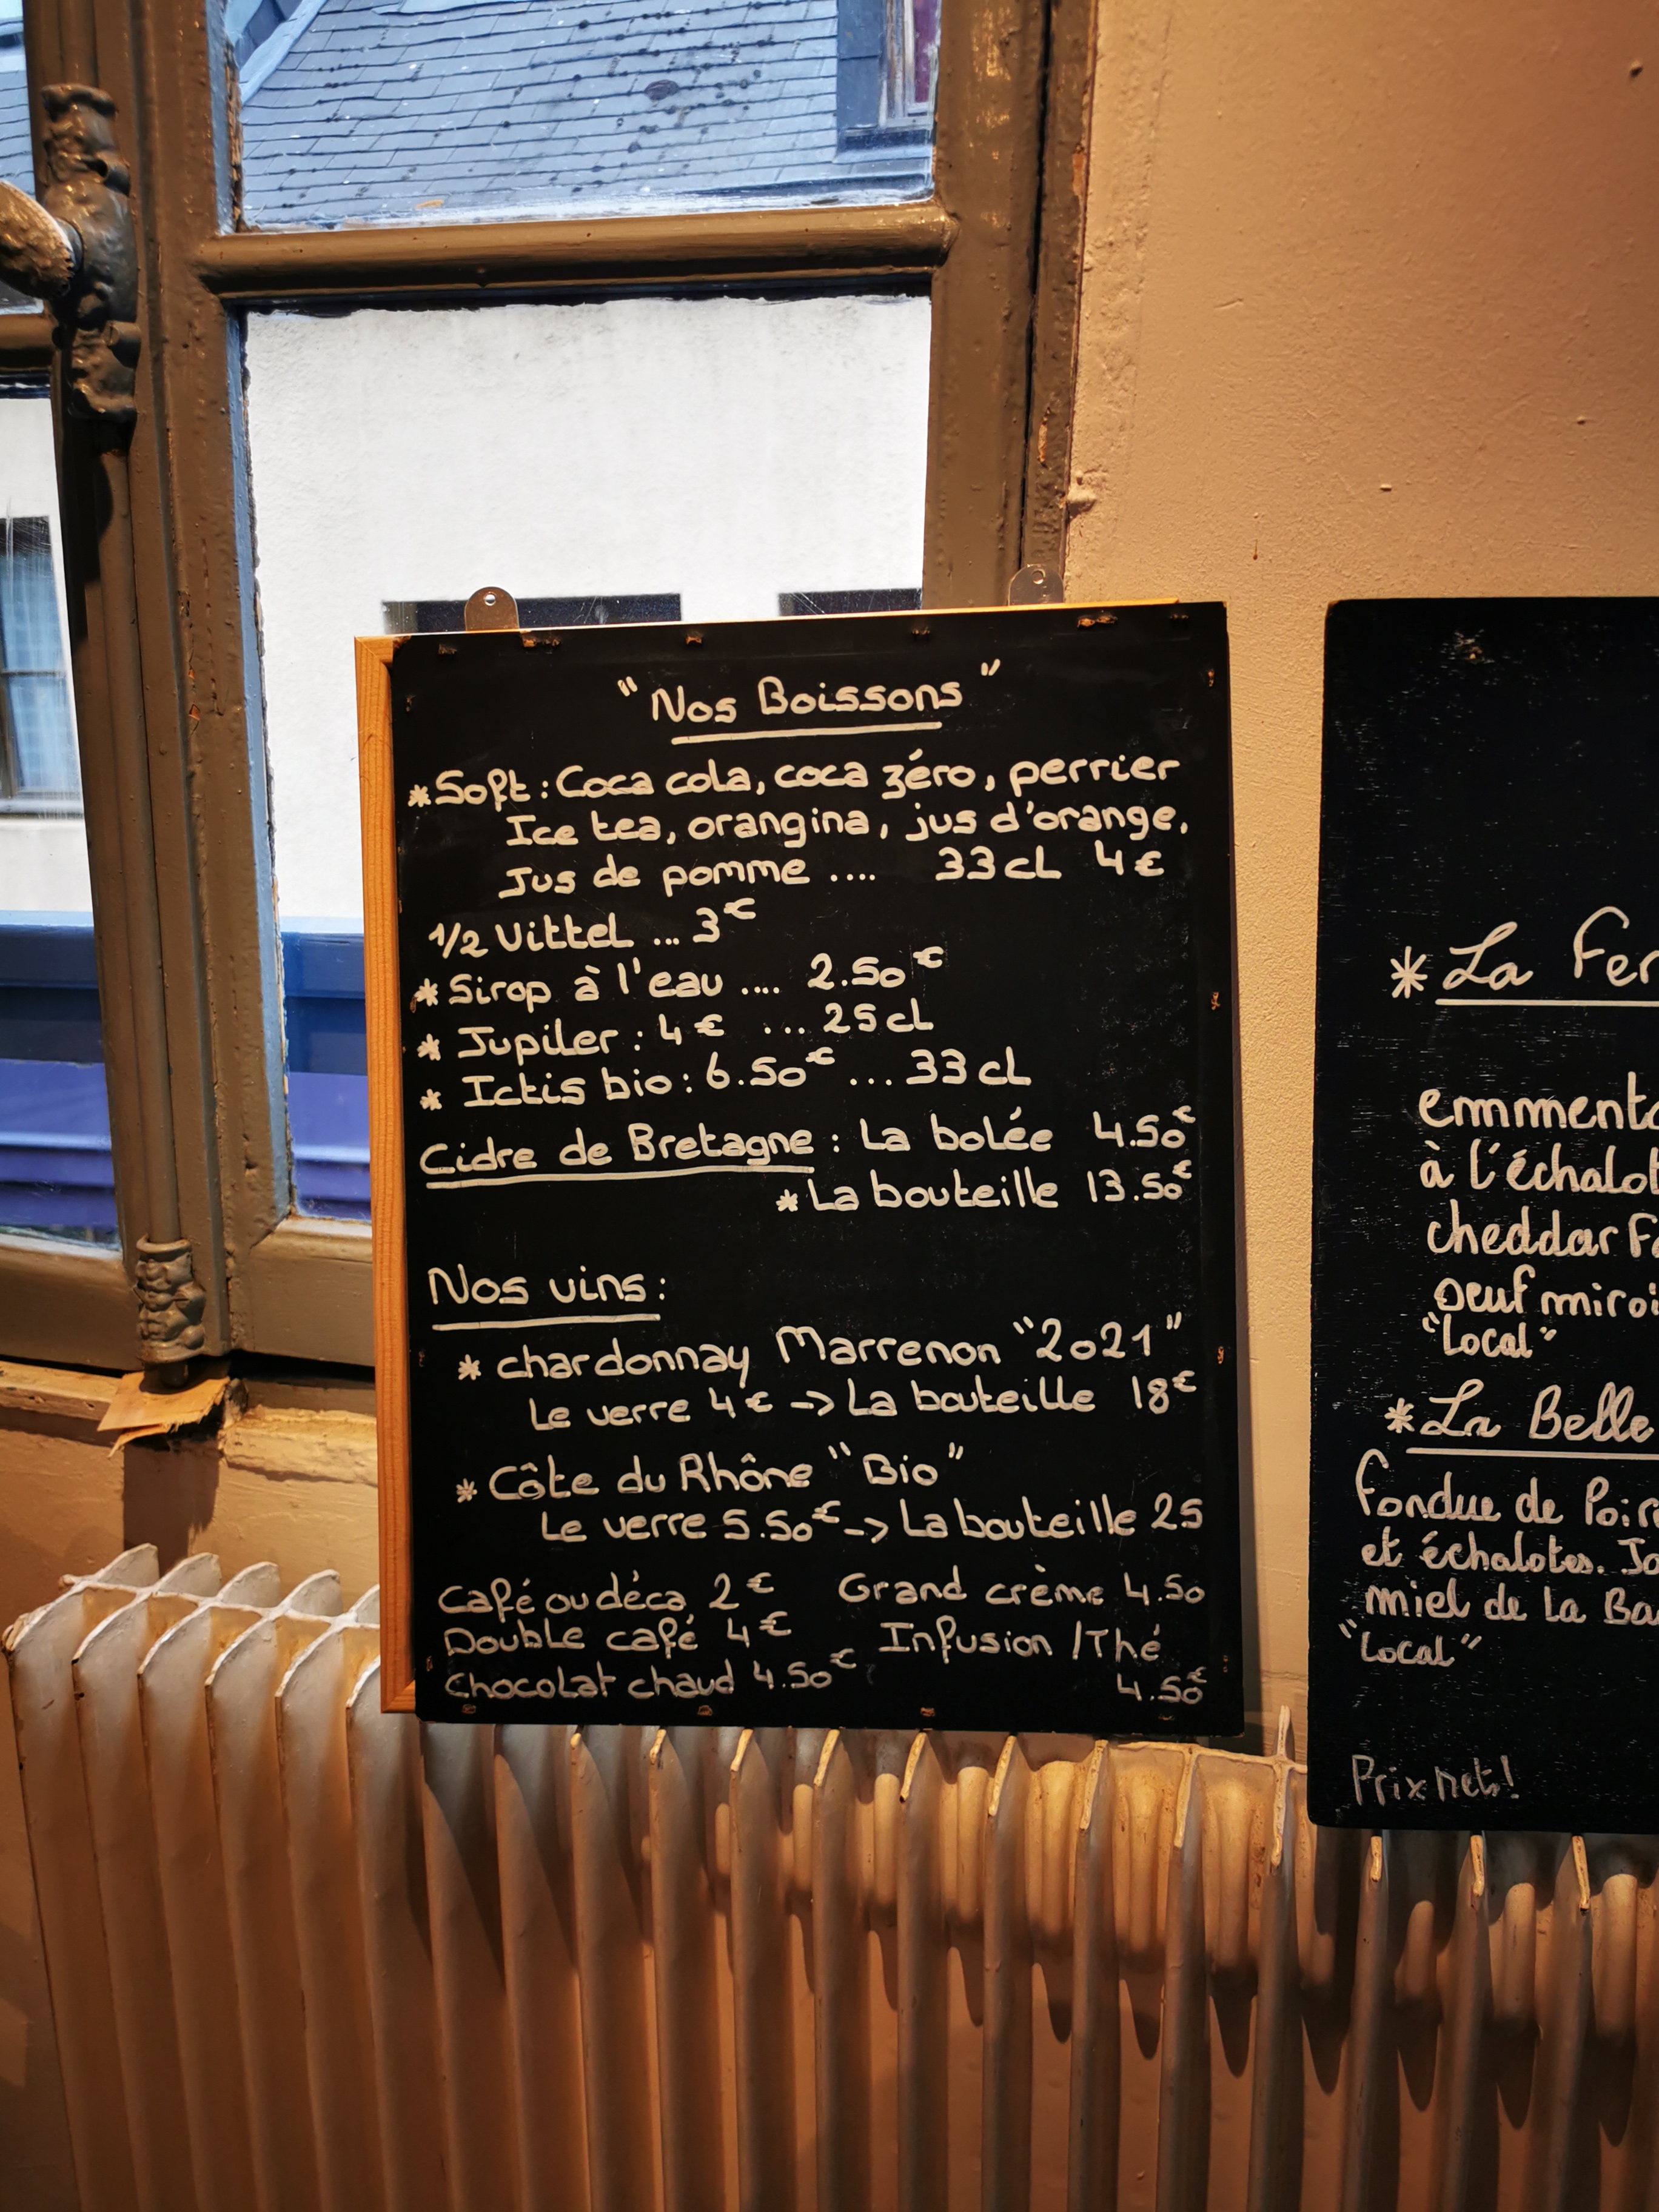 "Nos Boissons"
*Soft : Coca cola, coca zéro, perrier
Ice tea, orangina, jus d'orange,
Jus de pomme .... 33cL 4€
1/2 Vittel ... 3€
*Sirop à l'eau .... 2.50€
* Jupiler : 4€ ... 25cl
* Ictis bio : 6.50€ ... 33cl
Cidre de Bretagne : La bolée 4.50€
*La bouteille 13.50€
Nos vins :
* chardonnay Marrenon "2021"
Le verre 4€ -> La bouteille 18€
* Côte du Rhône "Bio"
Le verre 5.50€ -> La bouteille 25
Café ou déca 2€ Grand crème 4.50
Double café 4€ Infusion /Thé
Chocolat chaud 4.50€ 4.50€
*La Fer
emmenta
à l'échalot
cheddar Fo
oeuf miroi
"Local"
*La Belle
fondue de Poire
et échalotes. Jo
miel de la Ba
"Local"
Prix net!